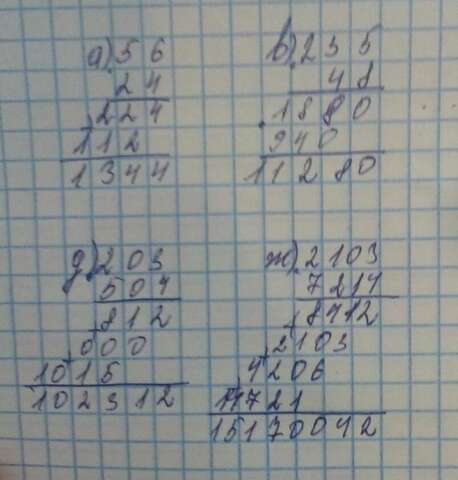 а) 56
24
224
112
1344
в) 235
48
1880
940
11280
д) 203
504
812
000
1015
102312
ж) 2103
7214
8412
2103
4206
14721
15170042